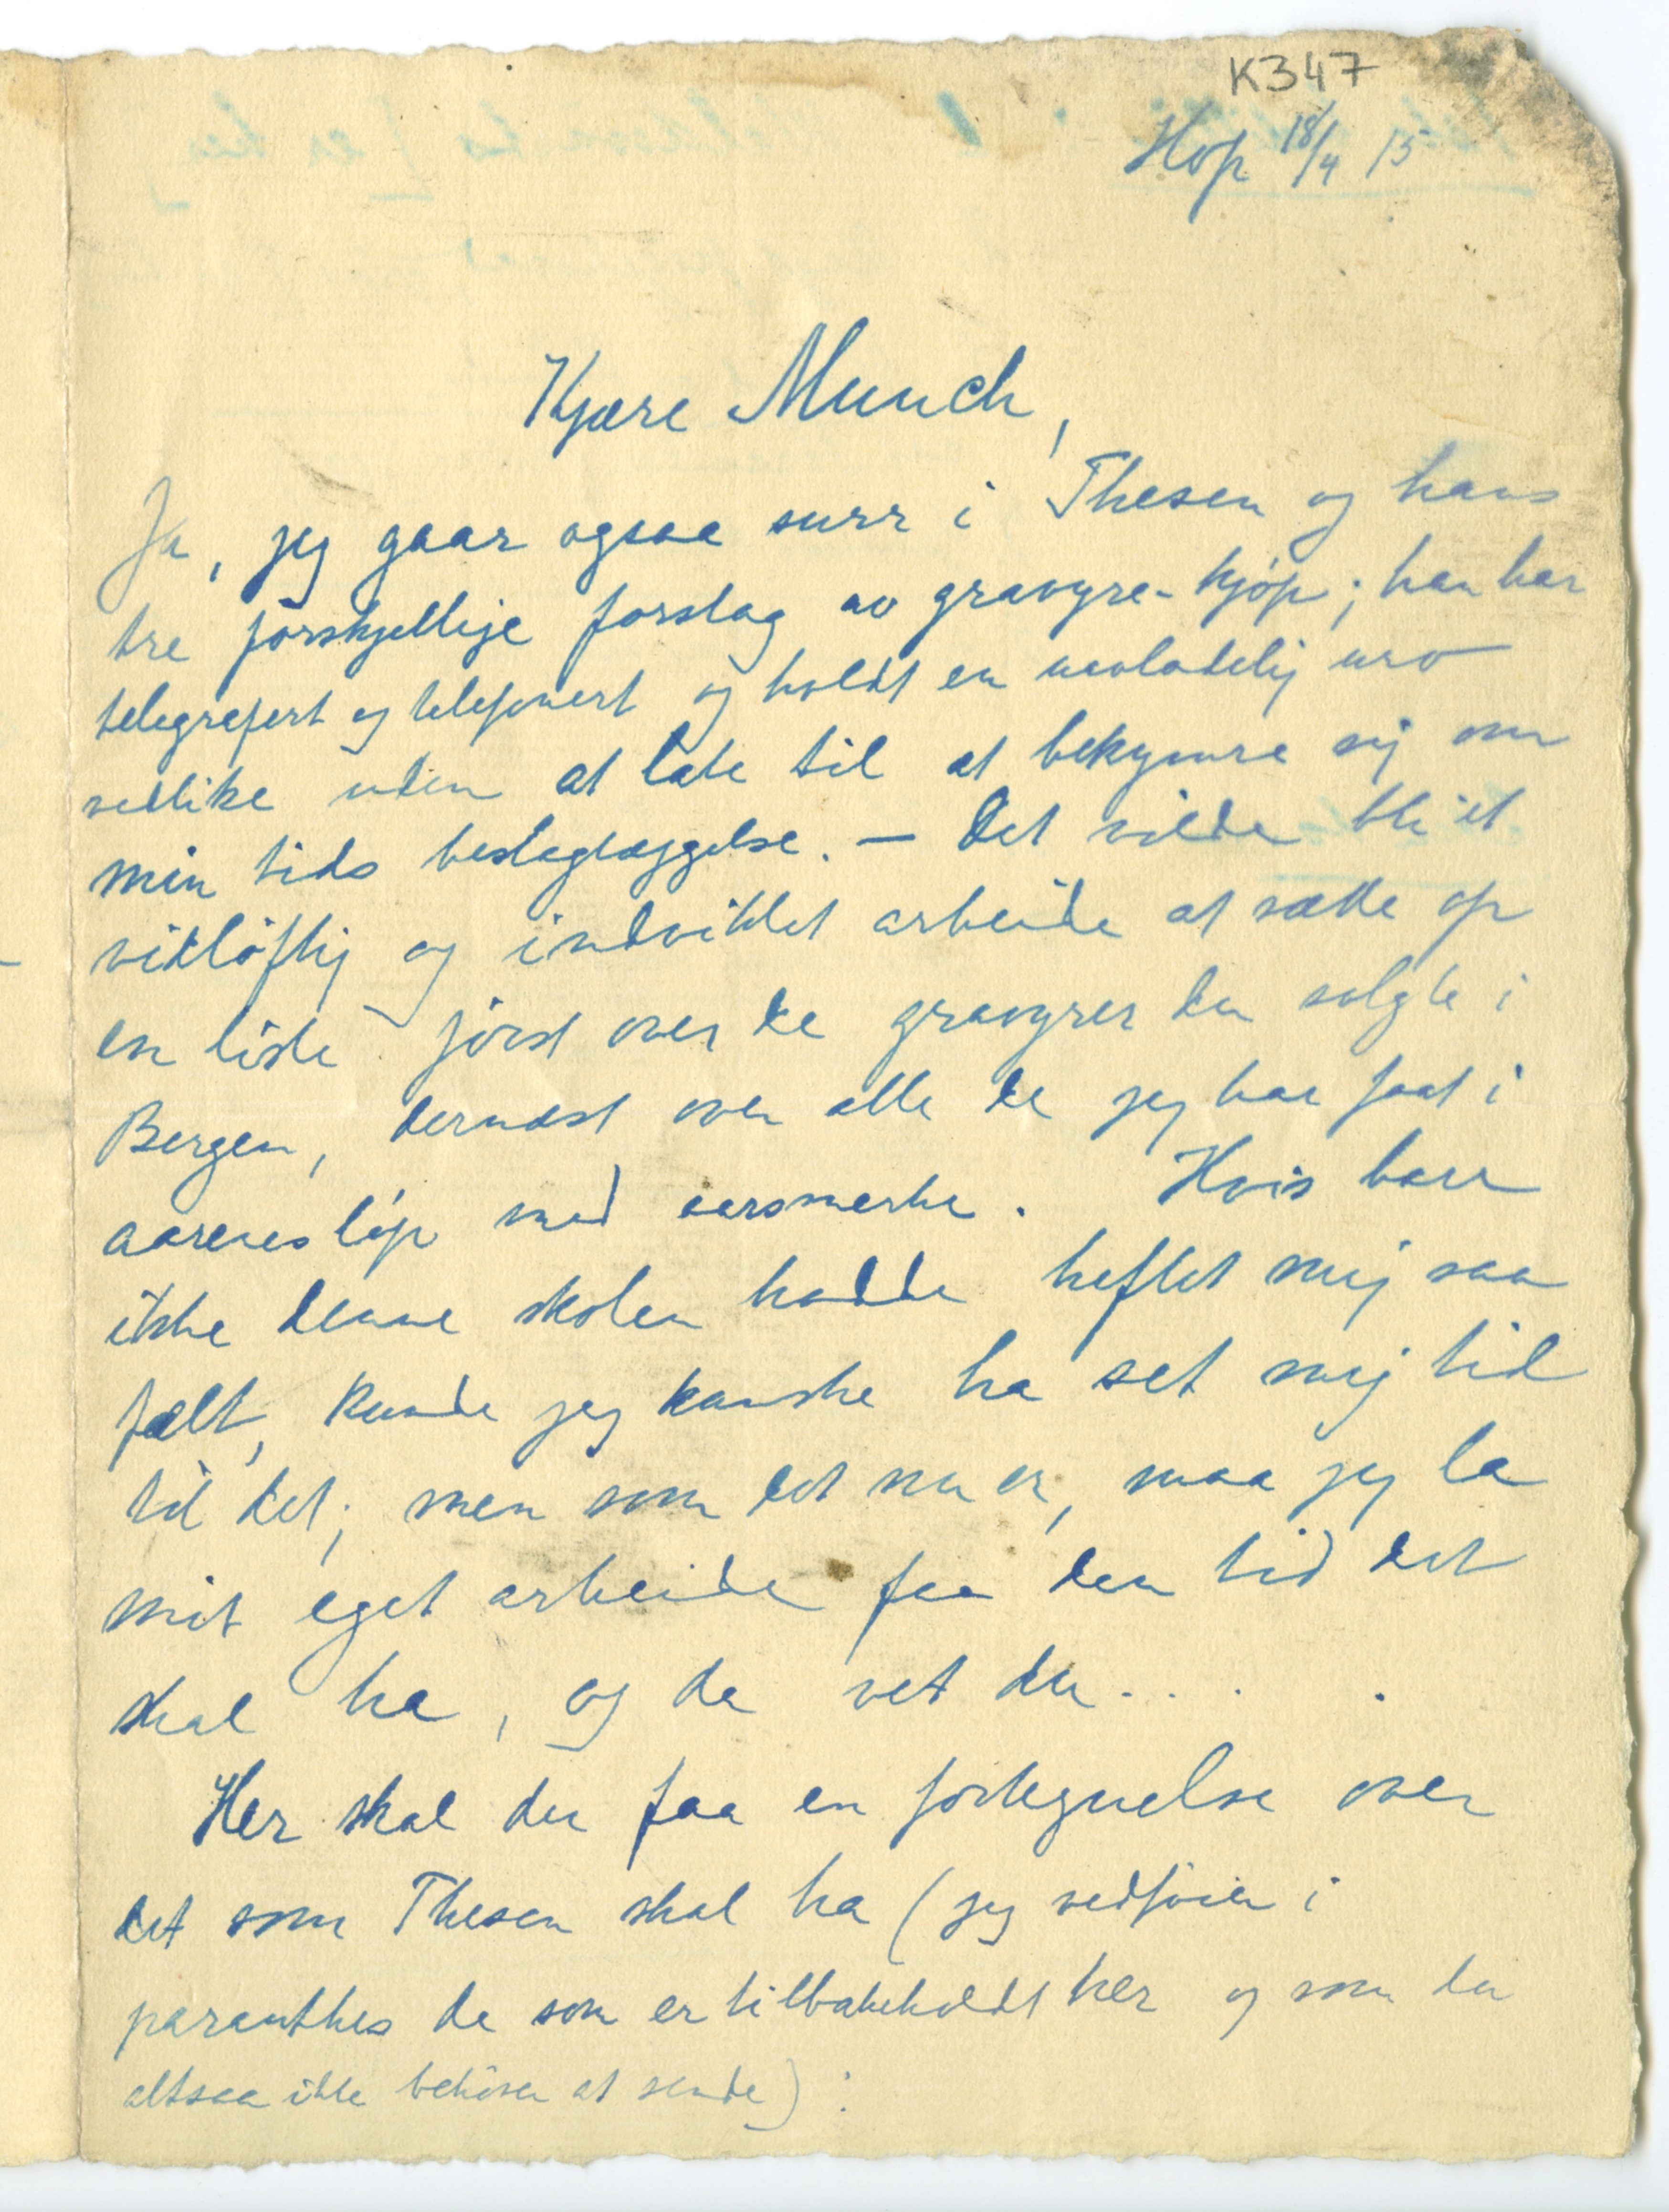 K347
Hop 18/4 15
Kjære Munch,
Ja, jeg gaar ogsaa surr i Thesen og hans
tre forskjellige forslag av gravyre-kjøp; han har
telegrafert og telefonert og holdt en uavladelig uro
vedlike uden at late til at bekymre sig om
min tids beslaglæggelse. – Det vilde bli et
vidtløftig og indviklet arbeide at sætte op
en liste først over de gravyrer du solgte i
Bergen, dernæst over alle de jeg har faat i
aarenes løp med aarsmerke. Hvis bare
ikke denne skolen hadde heftet mig saa
fælt, kunde jeg kanske ha set mig tid
til det; men som det nu er, maa jeg la
mit eget arbeide faa den tid det
skal ha, og da vet du....
Her skal du faa en fortegnelse over
det som Thesen skal ha (jeg vedføier i
paranthes de som er tilbakeholdt her og som du
altsaa ikke behøver at sende):